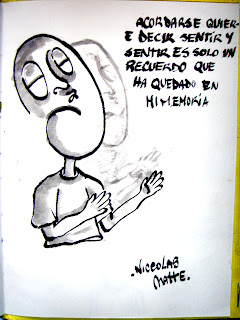 ACORDARSE QUIER-
E DECIR SENTIR Y
SENTIR ES SOLO UN
RECUERDO QUE
HA QUEDADO EN
MI MEMORIA
.NICCOLAS
MATTE.